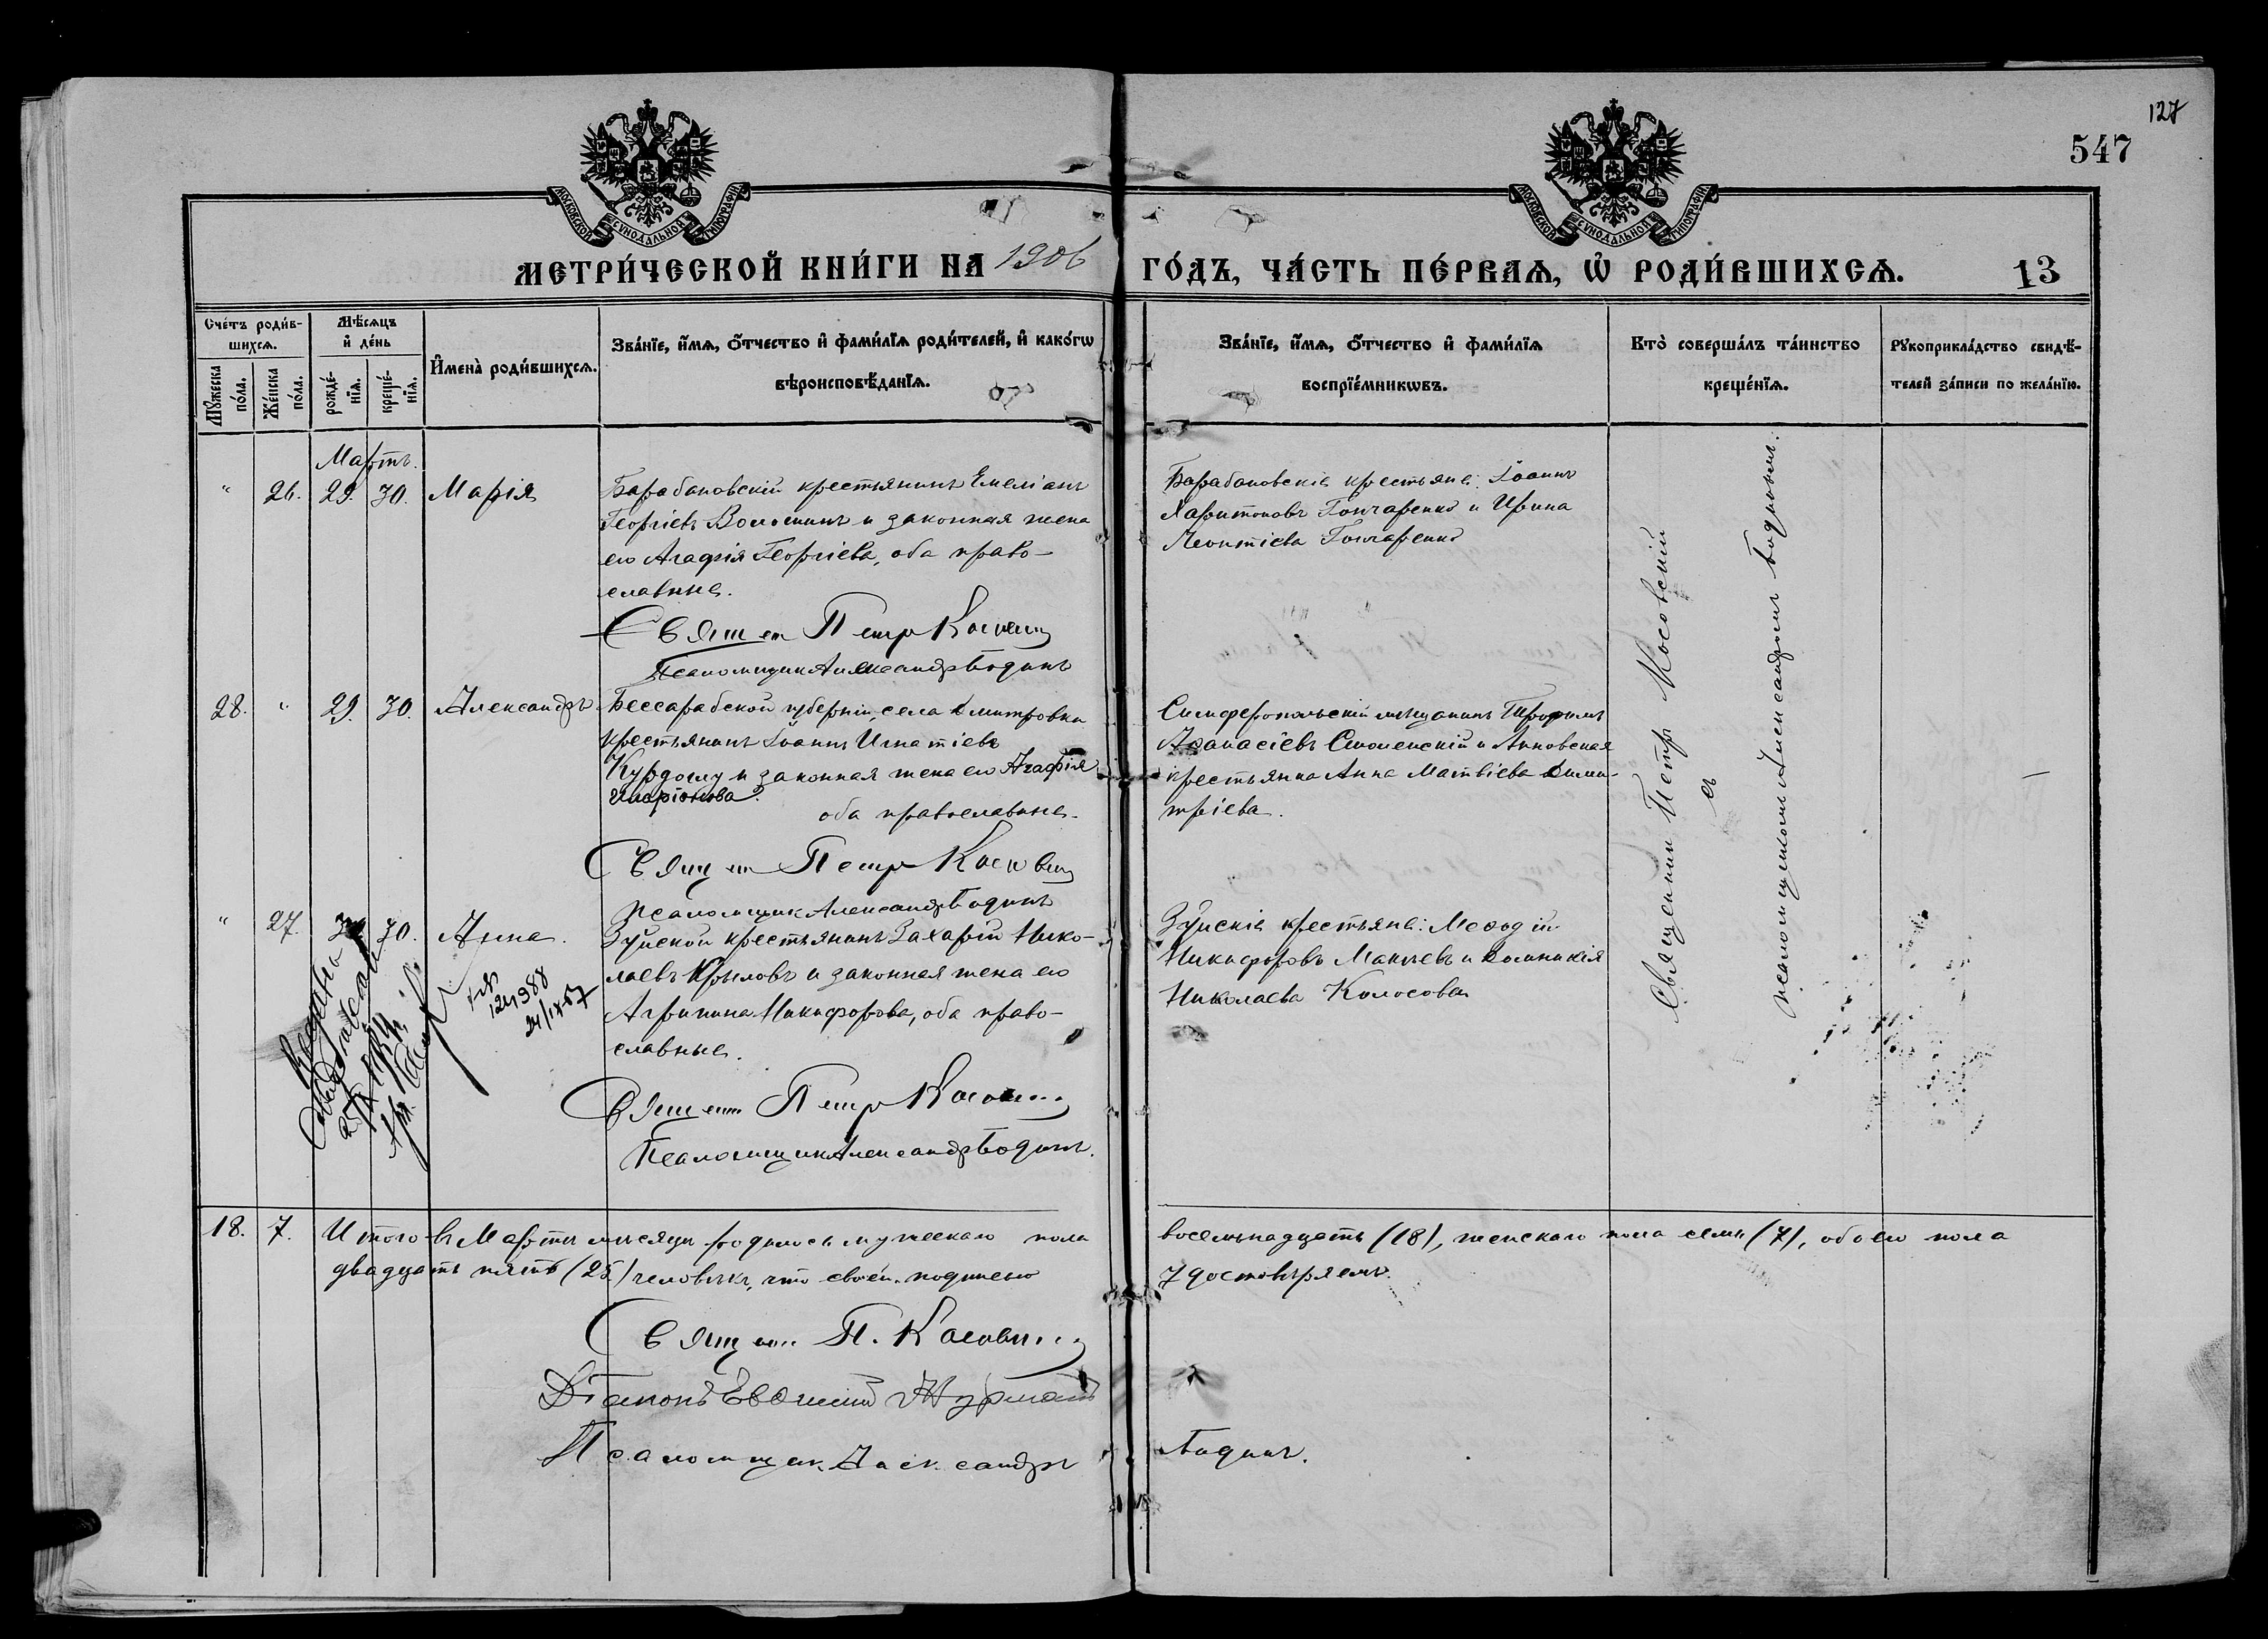 127
547
МОСКОВСКОЙ СѴНОДАЛЬНОЙ ТИПОГРАФІИ
МОСКОВСКОЙ СѴНОДАЛЬНОЙ ТИПОГРАФІИ
МЕТРИ́ЧЕСКОЙ КНИ́ГИ НА 1906 ГО́ДЪ, ЧА́СТЬ ПЕ́РВАѦ, Ѽ РОДИ́ВШИХСѦ. 13
Сче́тъ роди́в-
шихсѧ.
Мꙋ́жеска по́ла.
Же́нска по́ла.
Мѣ́сѧцъ и҆ де́нь
рожде́-
нїѧ.
креще́-
нїѧ.
И҆мена̀ роди́вшихсѧ.
Зва́нїе, и҆́мѧ, ѻ҆́тчество и҆ фами́лїѧ роди́телей, и҆ како́гѡ
вѣроисповѣ́данїѧ.
Зва́нїе, и҆́мѧ, ѻ҆́тчество и҆ фами́лїѧ
воспрїе́мникѡвъ.
Кто̀ соверша́лъ та́инство
креще́нїѧ.
Рꙋкоприкла́дство свидѣ́-
телей за́писи по жела́нїю.
Мартъ.
" 26. 29. 30. Марія
Барабановскій крестьянинъ Емеліанъ
Георгіевъ Волошинъ и законная жена
его Агафія Георгіева, оба право-
славные.
Священ Петръ Косовскій
Псаломщикъ Александръ Бодинъ
Барабановскіе крестьяне: Іоаннъ
Харитоновъ Гончаренко и Ирина
Леонтіева Гончаренко
28. " 29. 30. Александръ
Бессарабской губерніи, села Дмитровки
крестьянинъ Іоаннъ Игнатіевъ
Курдоглу и законная жена его Агафія
Иларіонова.
оба православные.
Священ Петръ Косовскій
Псаломщикъ Александръ Бодинъ
Симферопольскій мѣщанинъ Трофимъ
Афанасіевъ Смоленскій и Анновская
крестьянка Анна Матвіева Дими-
тріева.
" 27. 30. Анна.
Зуйской крестьянинъ Захарій Нико-
лаевъ Крыловъ и законная жена его
Агрипина Никифорова, оба право-
славные.
Священ Петръ Косовскій
Псаломщикъ Александръ Бодинъ.
Зуйскіе крестьяне: Меѳодій
Никифоровъ Макаевъ и Домникія
Николаева Колосова
Священникъ Петръ Косовскій
съ
псаломщикомъ Александромъ Бодинымъ.
18. 7. Итого въ Мартѣ мѣсяцѣ родилось мужескаго пола восемьнадцать (18), женскаго пола семь (7), обоего пола
двадцать пять (25) человѣкъ, что своею подписью удостовѣряемъ.
Священ П. Косовскій
Діаконъ Евѳимій Журманъ
Псаломщикъ Александръ Бодинъ.